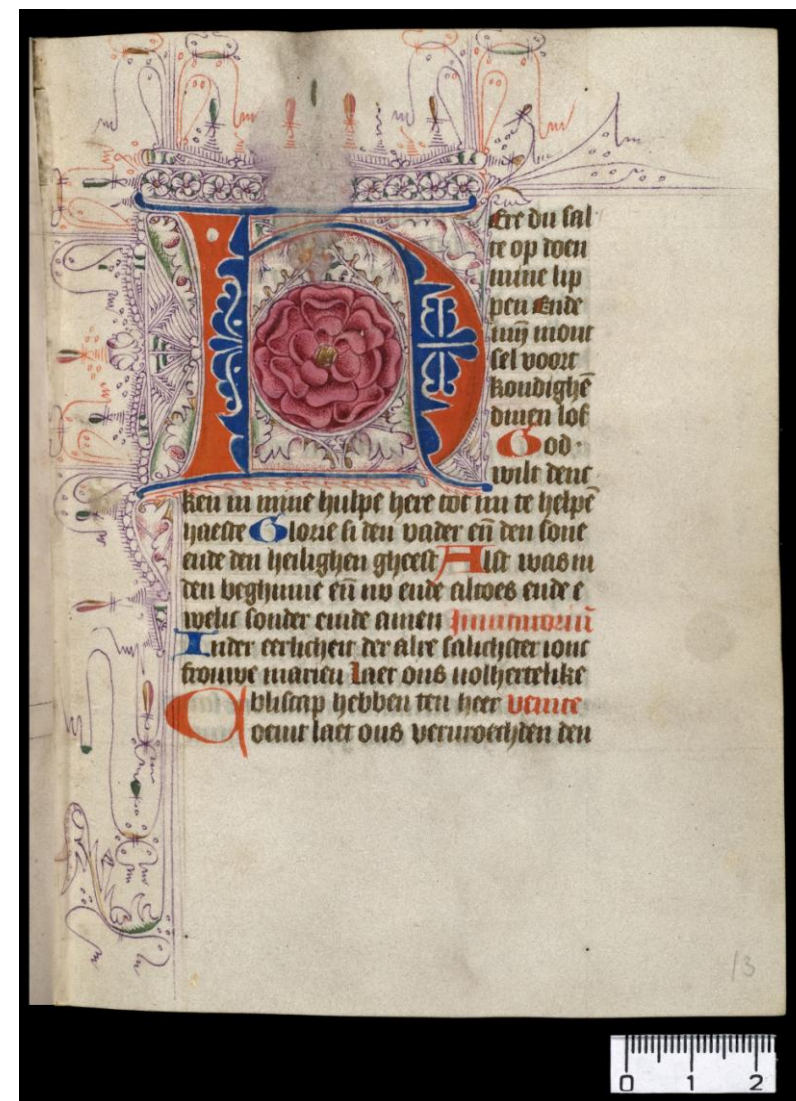 Here du sal
te op doen
mine lip
pen Ende
mȳ mont
sel voort
kondighē
dinen lof
God
wilt denc
ken in mine hulpe here tot mi te helpē
haeste Glorie si den vader eñ den sone
ende den heilighen gheest Alst was in
den beghinne eñ nv ende altoes ende e
welic sonder einde amen Inuitatoriū
Inder eerlicheit der alre salichster ionc
frouwe marien Laet ons volhertelike
bliscap hebben ten heer venite
Coemt laet ons vervroechden den
13
0 1 2